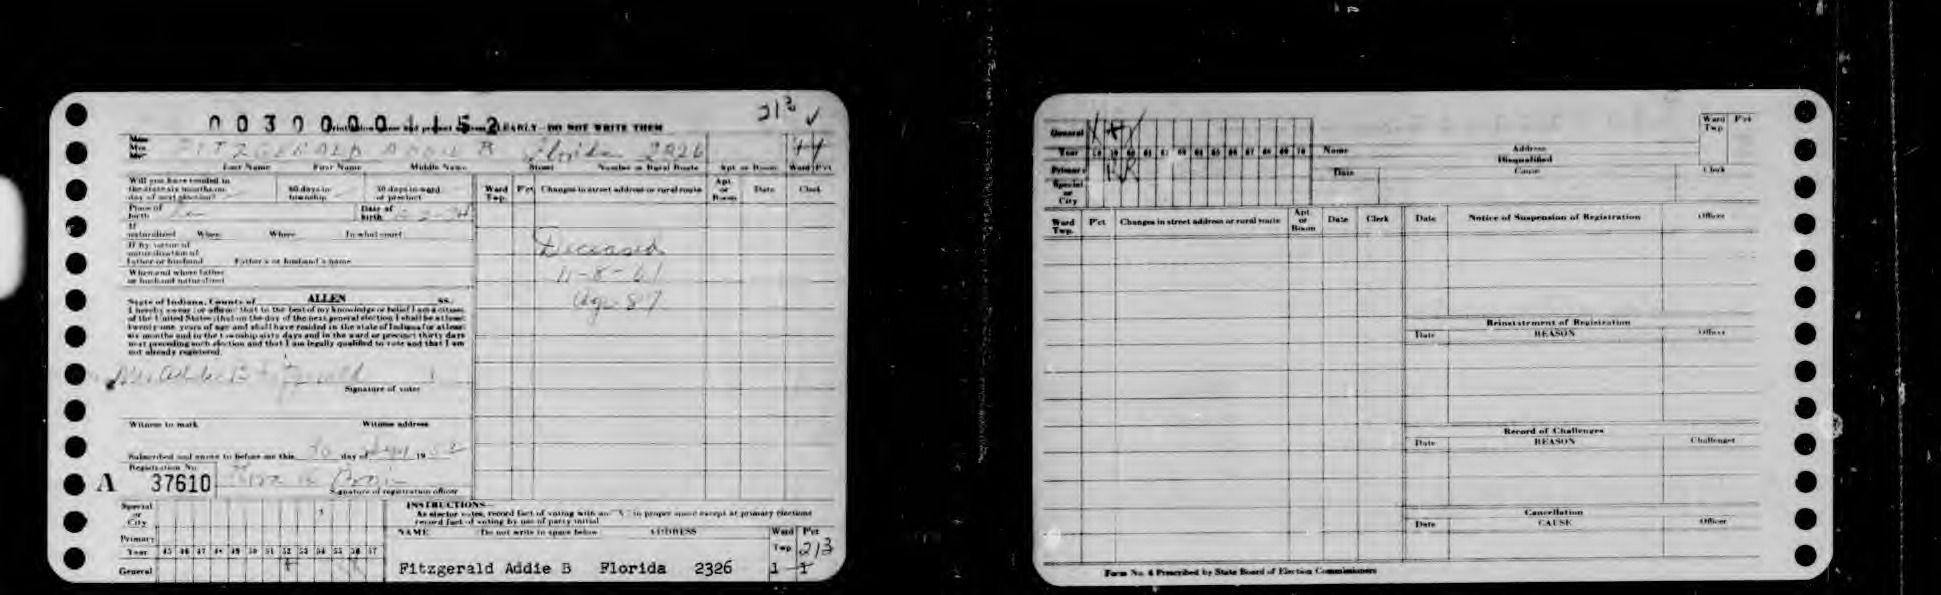 21³ ✓
0030000 1152
Print CLEARLY - DO NOT WRITE THEM
Miss
Mrs
Mr
FITZGERALD ADDIE B Florida 2326
Last Name First Name Middle Name Street Number or Rural Route Apt or Room Ward Pct
Will you have resided in
the state six months on
day of next election?
60 days in
township
30 days in ward
or precinct
Ward
Twp.
P'ct Changes in street address or rural route
Apt
or
Room
Date Clerk
Place of
birth
Date of
birth
If
naturalized When Where In what court
If by virtue of
naturalization of
Father or husband Father's or husband's name
When and where father
or husband naturalized
Deceased
11-8-61
Age 87
State of Indiana, County of ALLEN SS.
I hereby swear (or affirm) that to the best of my knowledge or belief I am a citizen
of the United States; that on the day of the next general election I shall be at least
twenty-one years of age and shall have resided in the state of Indiana for at least
six months and in the township sixty days and in the ward or precinct thirty days
next preceding such election and that I am legally qualified to vote and that I am
not already registered.
Signature of voter
Witness to mark Witness address
Subscribed and sworn to before me this 30 day of Sept 1952
Registration No.
A 37610
Signature of registration officer
Special
or
City
Primary
Year 45 46 47 48 49 50 51 52 53 54 55 56 57
General
INSTRUCTIONS—
As elector votes, record fact of voting with an "X" in proper space except at primary elections
record fact of voting by use of party initial
NAME (Do not write in space below) ADDRESS Ward P'ct
Twp 213
Fitzgerald Addie B Florida 2326 1 1
General
Year 58 59 60 61 62 63 64 65 66 67 68 69 70
Primary
Special
or
City
Name Address
Disqualified
Date Cause Clerk
Ward
Twp
P'ct
Ward
Twp.
P'ct Changes in street address or rural route
Apt.
or
Room
Date Clerk
Date Notice of Suspension of Registration Officer
Reinstatement of Registration
Date REASON Officer
Record of Challenges
Date REASON Challenger
Cancellation
Date CAUSE Officer
Form No. 4 Prescribed by State Board of Election Commissioners